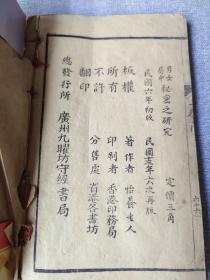 男女房中秘密之研究
定價三角
民國六年初版
民國十五年六次再版
著作者 怡養生人
印刷者 香港印務局
分售處 省港各書坊
版權所有不許翻印
總發行所 廣州九曜坊守經書局